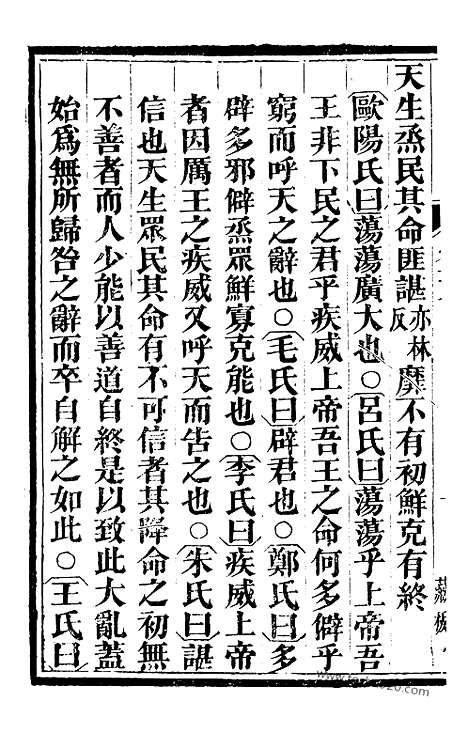 天生烝民其命匪諶市林反靡不有初鮮克有終
歐陽氏曰蕩蕩廣大也○呂氏曰蕩蕩乎上帝吾
王非下民之君乎疾威上帝吾王之命何多僻乎
窮而呼天之辭也○毛氏曰辟君也○鄭氏曰多
辟多邪僻烝眾鮮寡克能也○李氏曰疾威上帝
者因厲王之疾威又呼天而告之也○朱氏曰諶
信也天生眾民其命有不可信者其降命之初無
不善者而人少能以善道自終是以致此大亂蓋
始爲無所歸咎之辭而卒自解之如此○王氏曰